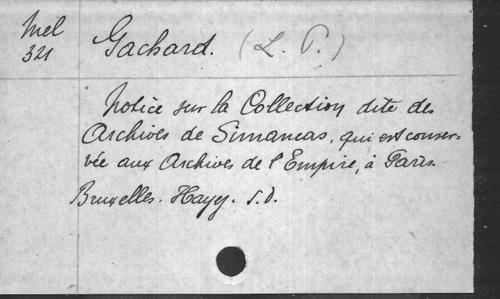 Mel
321
Gachard. (L. P.)
Notice sur la Collection dite des
Archives de Simancas, qui est conser-
vée aux Archives de l'Empire, à Paris.
Bruxelles. Hayez. S.D.